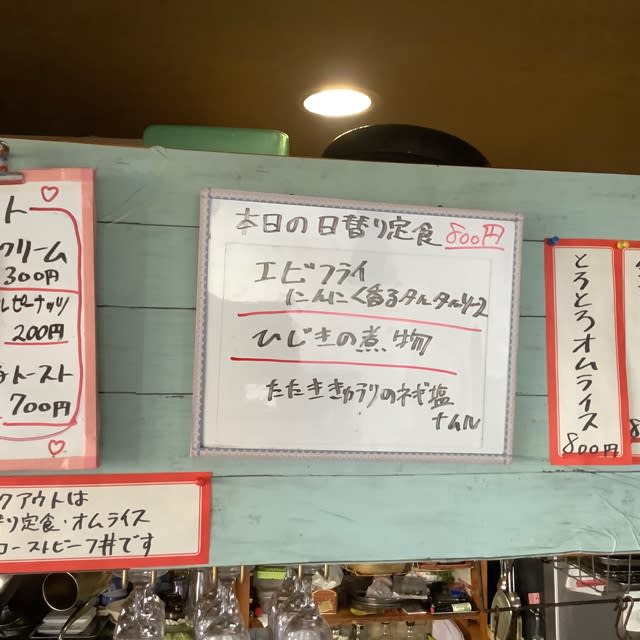 ト
クリーム
300円
ルピーナッツ
200円
トースト
700円
本日の日替り定食 800円
エビフライ
にんにく香るタルタルソース
ひじきの煮物
たたききゅうりのネギ塩
ナムル
とろとろオムライス
800円
クアウトは
り定食・オムライス
ローストビーフ丼です